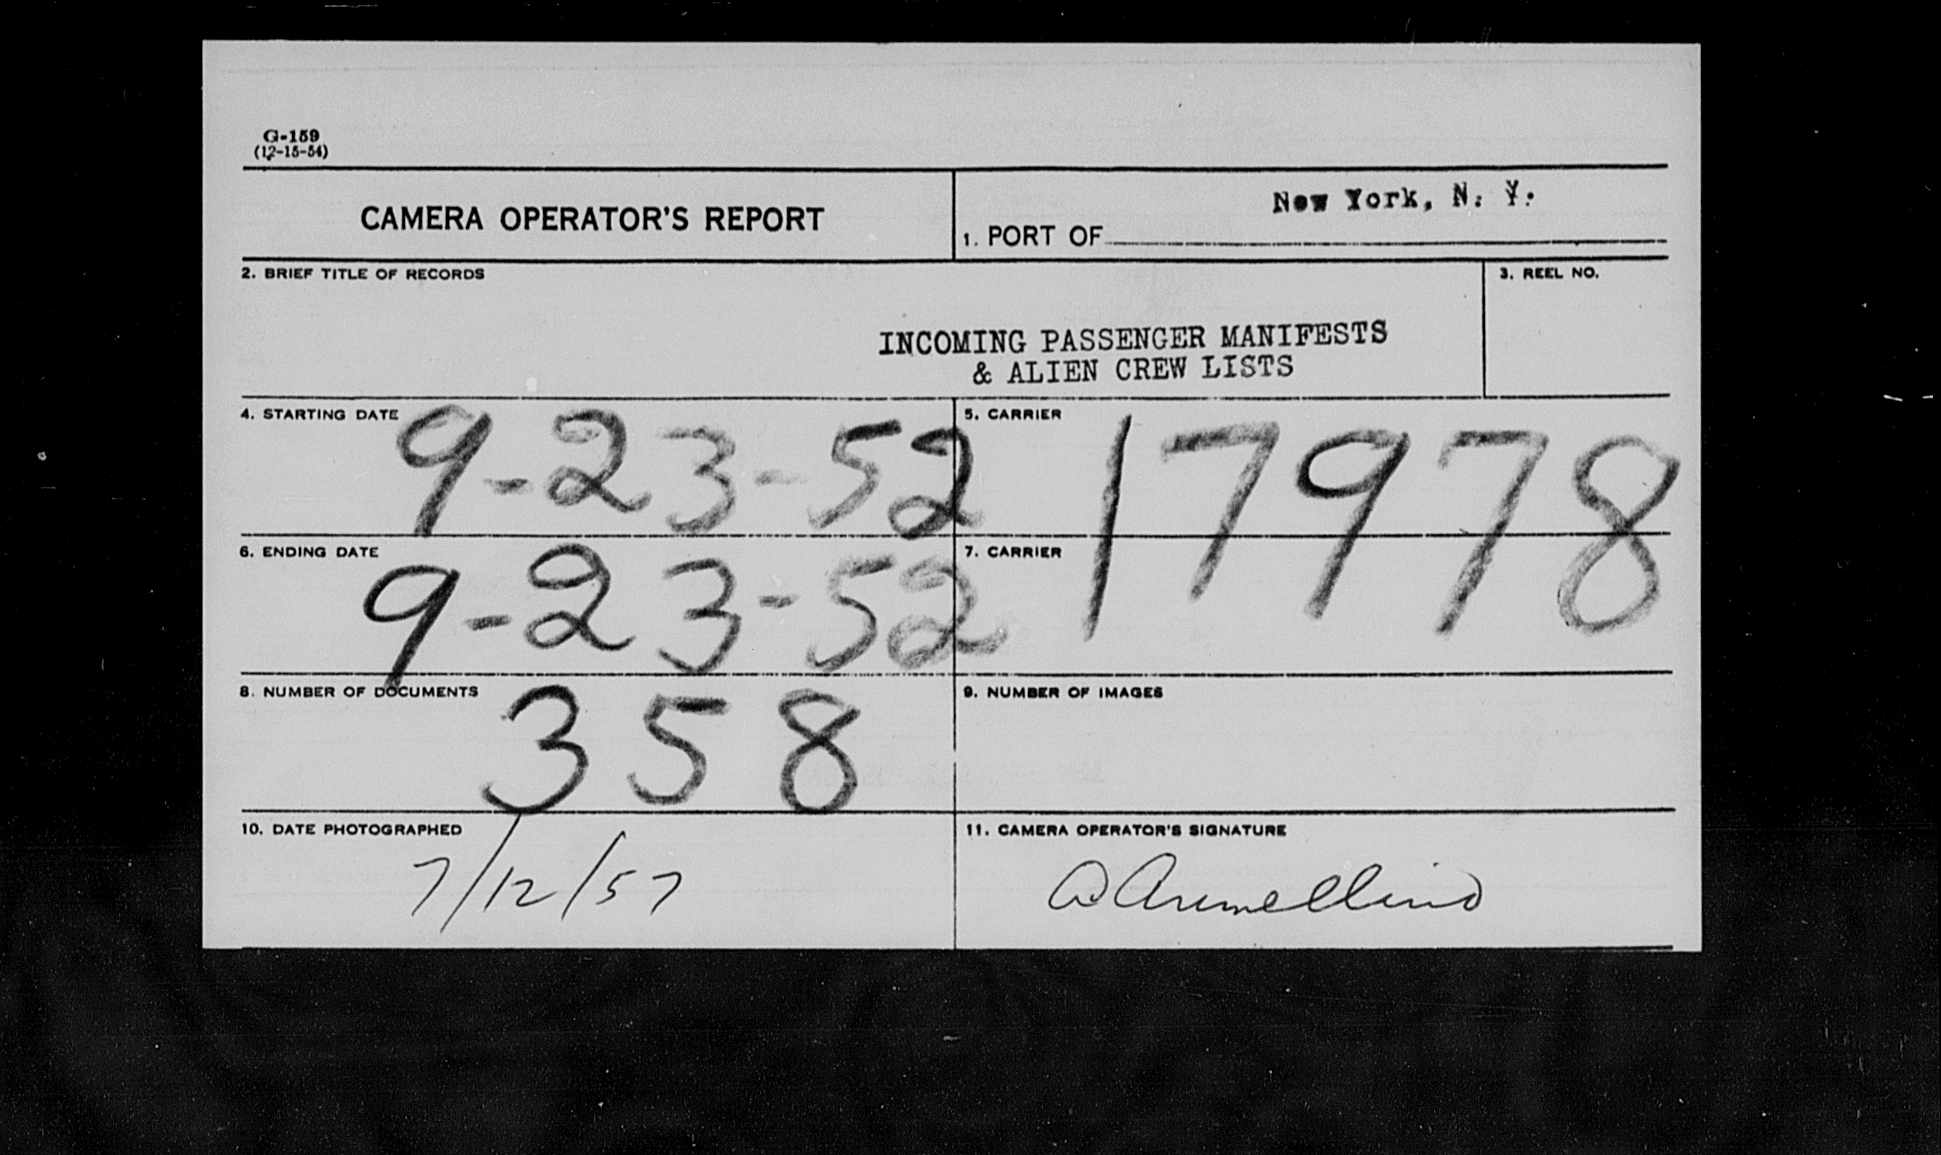 G-159
(12-15-54)
CAMERA OPERATOR'S REPORT
1. PORT OF New York, N. Y.
2. BRIEF TITLE OF RECORDS
3. REEL NO.
INCOMING PASSENGER MANIFESTS
& ALIEN CREW LISTS
4. STARTING DATE 9-23-52
5. CARRIER
17978
6. ENDING DATE 9-23-52
7. CARRIER
8. NUMBER OF DOCUMENTS 358
9. NUMBER OF IMAGES
10. DATE PHOTOGRAPHED
7/12/57
11. CAMERA OPERATOR'S SIGNATURE
A Armellino